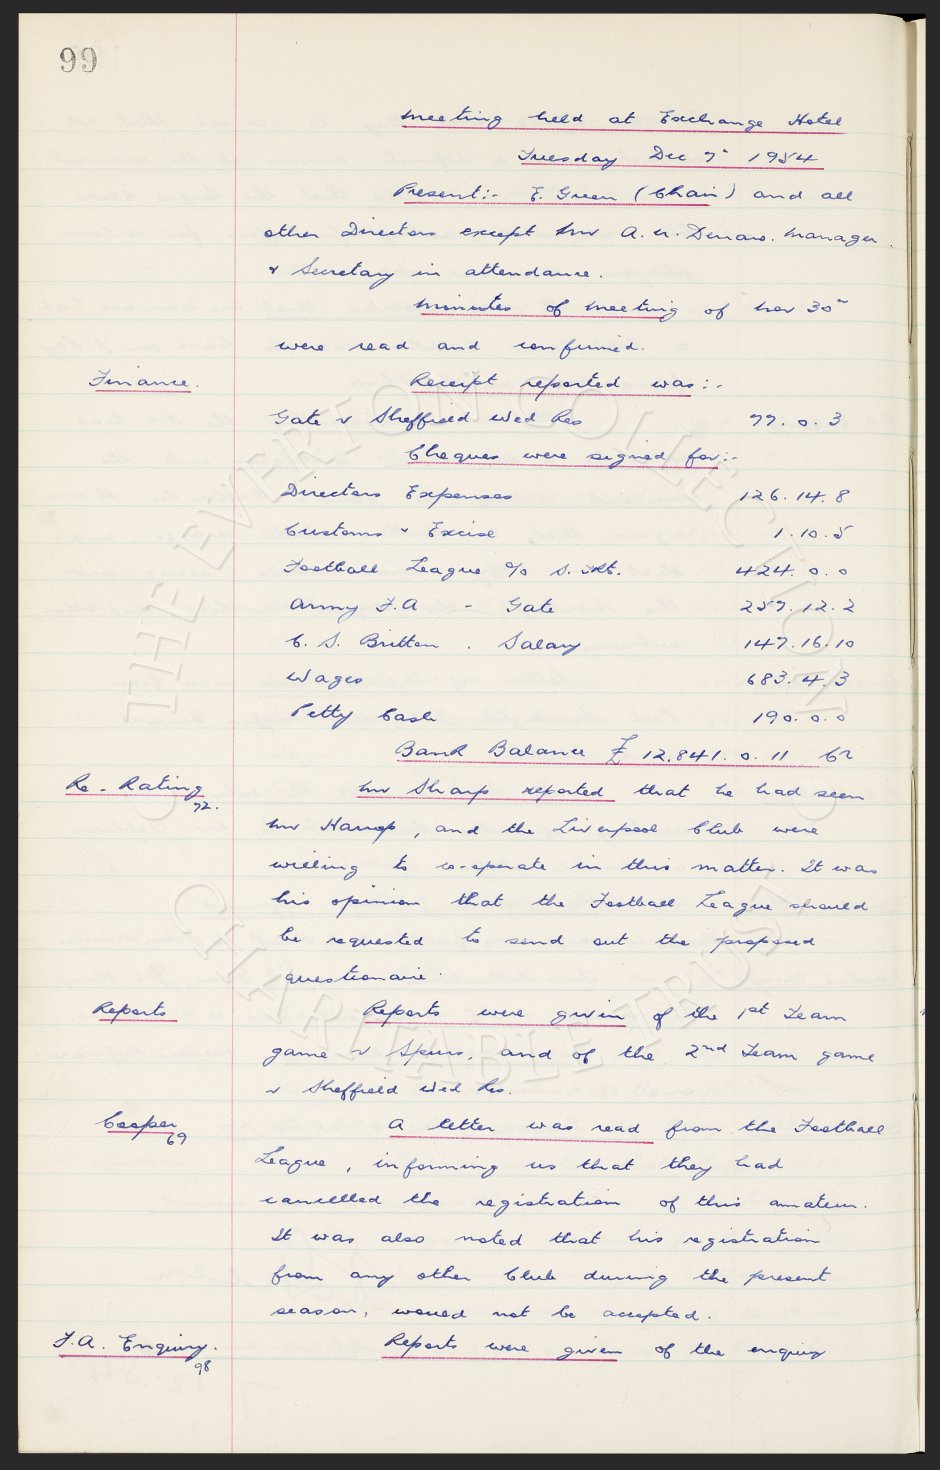 99
Meeting held at Exchange Hotel
Tuesday Dec 7" 1954
Present:- E. Green (Chair) and all
other Directors except Mr A. Denaro. Manager
& Secretary in attendance.
Minutes of Meeting of Nov 30"
were read and confirmed.
Finance.
Receipt reported was:-
Gate v Sheffield Wed Res 77. 0. 3
Cheques were signed for:-
Directors Expenses 126. 14. 8
Customs & Excise 1. 10. 5
Football League % S. Tkt. 424. 0. 0
Army F.A - Gate 257. 12. 2
C. S. Britton . Salary 147. 16. 10
Wages 683. 4. 3
Petty Cash 190. 0. 0
Bank Balance £ 12,841. 0. 11 Cr
Re-Rating
72.
Mr Sharp reported that he had seen
Mr Harrop, and the Liverpool Club were
willing to co-operate in this matter. It was
his opinion that the Football League should
be requested to send out the proposed
questionaire.
Reports
Reports were given of the 1st Team
game v Spurs, and of the 2nd Team game
v Sheffield Wed Res.
Cooper
69
A letter was read from the Football
League, informing us that they had
cancelled the registration of this amateur.
It was also noted that his registration
from any other Club during the present
season, would not be accepted.
F.A. Enquiry.
98
Reports were given of the enquiry
THE EVERTON COLLECTION
CHARITABLE TRUST